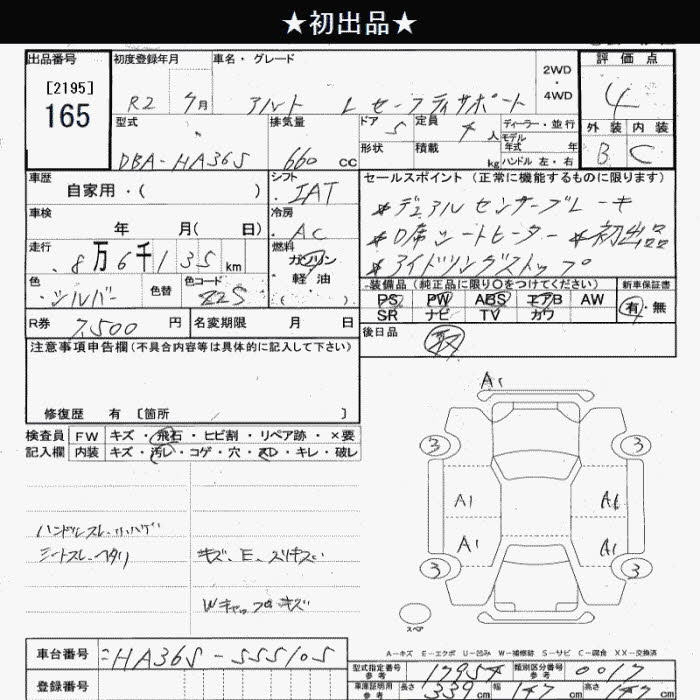 ★初出品★
出品番号 初度登録年月 車名・グレード 評価点
[2195] 2WD・4WD
165 R2 7月 アルト L セーフティサポート 4
型式 排気量 ドア 5 定員 4人 ディーラー・並行 外装 内装
モデル年式 年
DBA-HA36S 660cc 形状 積載 kg ハンドル 左・右 B C
車歴 シフト セールスポイント(正常に機能するものに限ります)
自家用・( ) IAT
*デュアルセンサーブレーキ
車検 冷房
年 月( 日) AC *D席シートヒーター *初出品
走行 燃料
8万6千135km ガソリン・軽油 *アイドリングストップ
色 色替 色コード 装備品(純正品に限り○をつけてください) 新車保証書
シルバー Z2S ( ) PS PW ABS エアB AW 有・無
SR ナビ TV カワ
R券 7,500円 名変期限 月 日 後日品 取
注意事項申告欄(不具合内容等は具体的に記入して下さい)
修復歴 有 [箇所 ]
検査員 FW キズ・飛石・ヒビ割・リペア跡・×要
記入欄 内装 キズ・汚レ・コゲ・穴・スレ・キレ・破レ
A1
3 3
A1 A1
A1 A1
3 3
ハンドルスレ・小ハゲ
シートスレ・ヘタリ キズ、E、スリキズ
Wキャップキズ
スペア
A-キズ E-エクボ U-凹み W-補修跡 S-サビ C-腐食 XX-交換済
車台番号 HA36S-555105
型式指定番号 参考 17954 類別区分番号 参考 0017
登録番号 車庫証明用 参考 長さ 339cm 幅 147cm 高さ 147cm